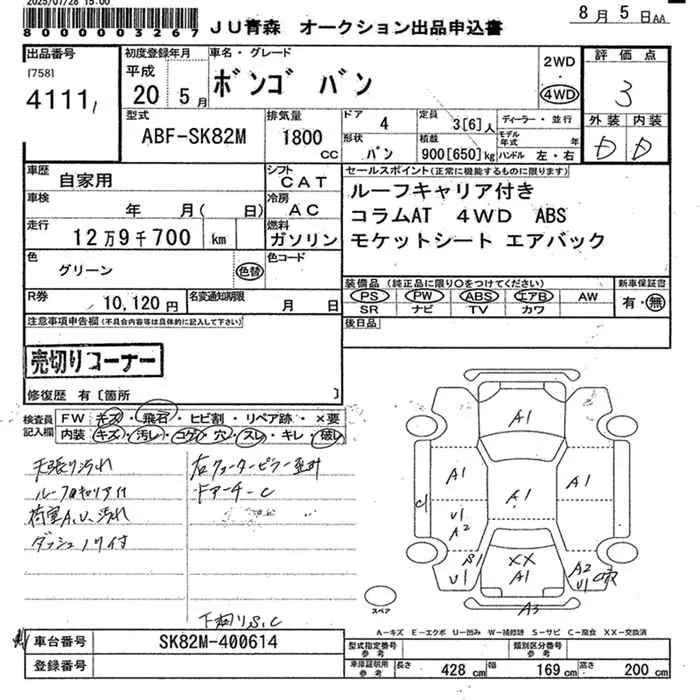 2025/07/28 15:00
8000003267
JU青森 オークション出品申込書
8月 5日AA
出品番号
[758]
4111
初度登録年月
平成
20 5月
車名・グレード
ボンゴ バン
2WD
・
4WD
評価点
3
外装 内装
D D
型式
ABF-SK82M
排気量
1800
CC
ドア
4
形状
バン
定員
3[6]人
積載
900[650]kg
ディーラー・並行
モデル年式 年
ハンドル 左・右
車歴
自家用
シフト
CAT
車検
年 月( 日)
冷房
AC
走行
12万9千700 km
燃料
ガソリン
色
グリーン
色替
色コード
R券
10,120円
名変通知期限
月 日
セールスポイント(正常に機能するものに限ります)
ルーフキャリア付き
コラムAT 4WD ABS
モケットシート エアバック
装備品(純正品に限り○をつけてください)
PS PW ABS エアB AW
SR ナビ TV カワ
新車保証書
有・無
後日品
注意事項申告欄(不具合内容等は具体的に記入して下さい)
売切りコーナー
修復歴 有〔箇所 〕
検査員記入欄
FW キズ・飛石・ヒビ割・リペア跡・×要
内装 キズ・汚レ・コゲ・穴・スレ・キレ・破レ
天張り汚れ
ルーフキャリア付
荷室A、U、汚れ
ダッシュノリ付
右クォーターピラー歪み
ドアーチーC
下廻りS、C
A1
A1
A1
A1
C1
U1
A2
S1
U1
XX
A1
A2
U1
A3
スペア
A-キズ E-エクボ U-凹み W-補修跡 S-サビ C-腐食 XX-交換済
車台番号
SK82M-400614
登録番号
型式指定番号
参考
類別区分番号
参考
車庫証明用
参考
長さ 428 cm
幅 169 cm
高さ 200 cm